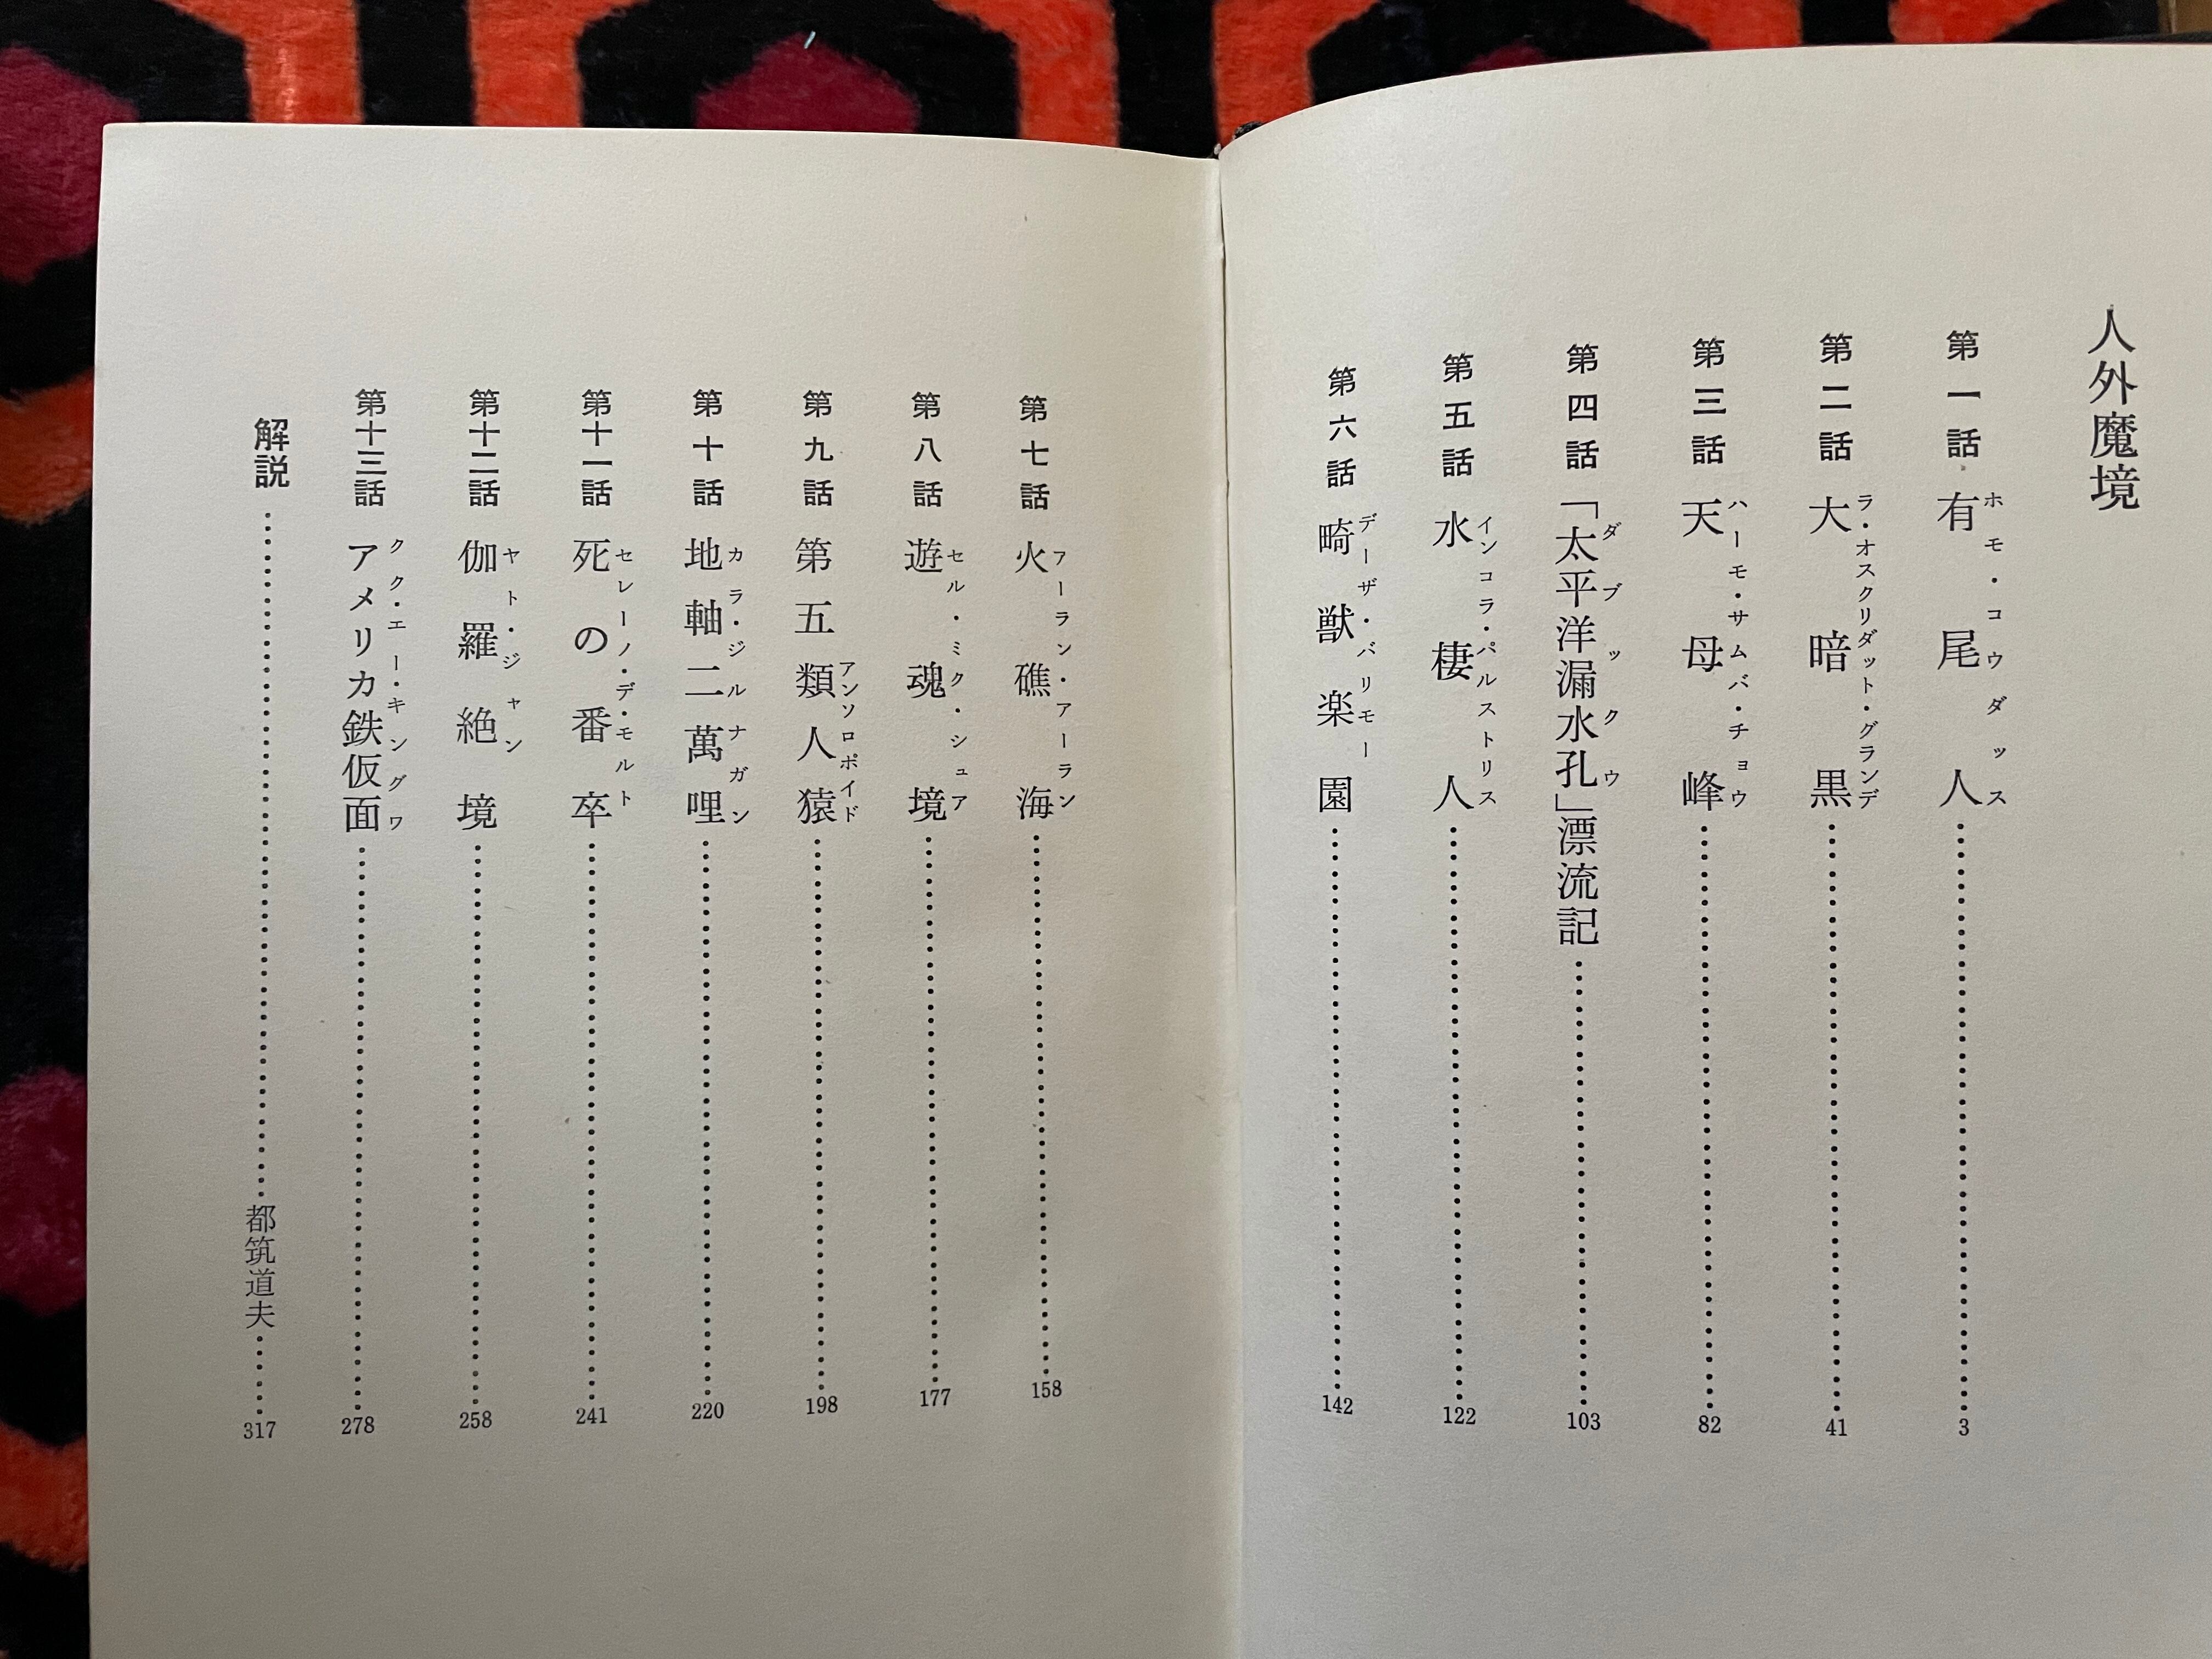 人外魔境
第一話 有尾人 ホモ・コウダッス 3
第二話 大暗黒 ラ・オスクリダット・グランデ 41
第三話 天母峰 ハーモ・サムバ・チョウ 82
第四話 「太平洋漏水孔」漂流記 ダブックウ 103
第五話 水棲人 インコラ・パルストリス 122
第六話 畸獣楽園 デーザ・バリモー 142
第七話 火礁海 アーラン・アーラン 158
第八話 遊魂境 セル・ミク・シュア 177
第九話 第五類人猿 アンソロポイド 198
第十話 地軸二萬哩 カラ・ジルナガン 220
第十一話 死の番卒 セレーノ・デ・モルト 241
第十二話 伽羅絶境 ヤト・ジャン 258
第十三話 アメリカ鉄仮面 クク・エー・キングワ 278
解説 都筑道夫 317